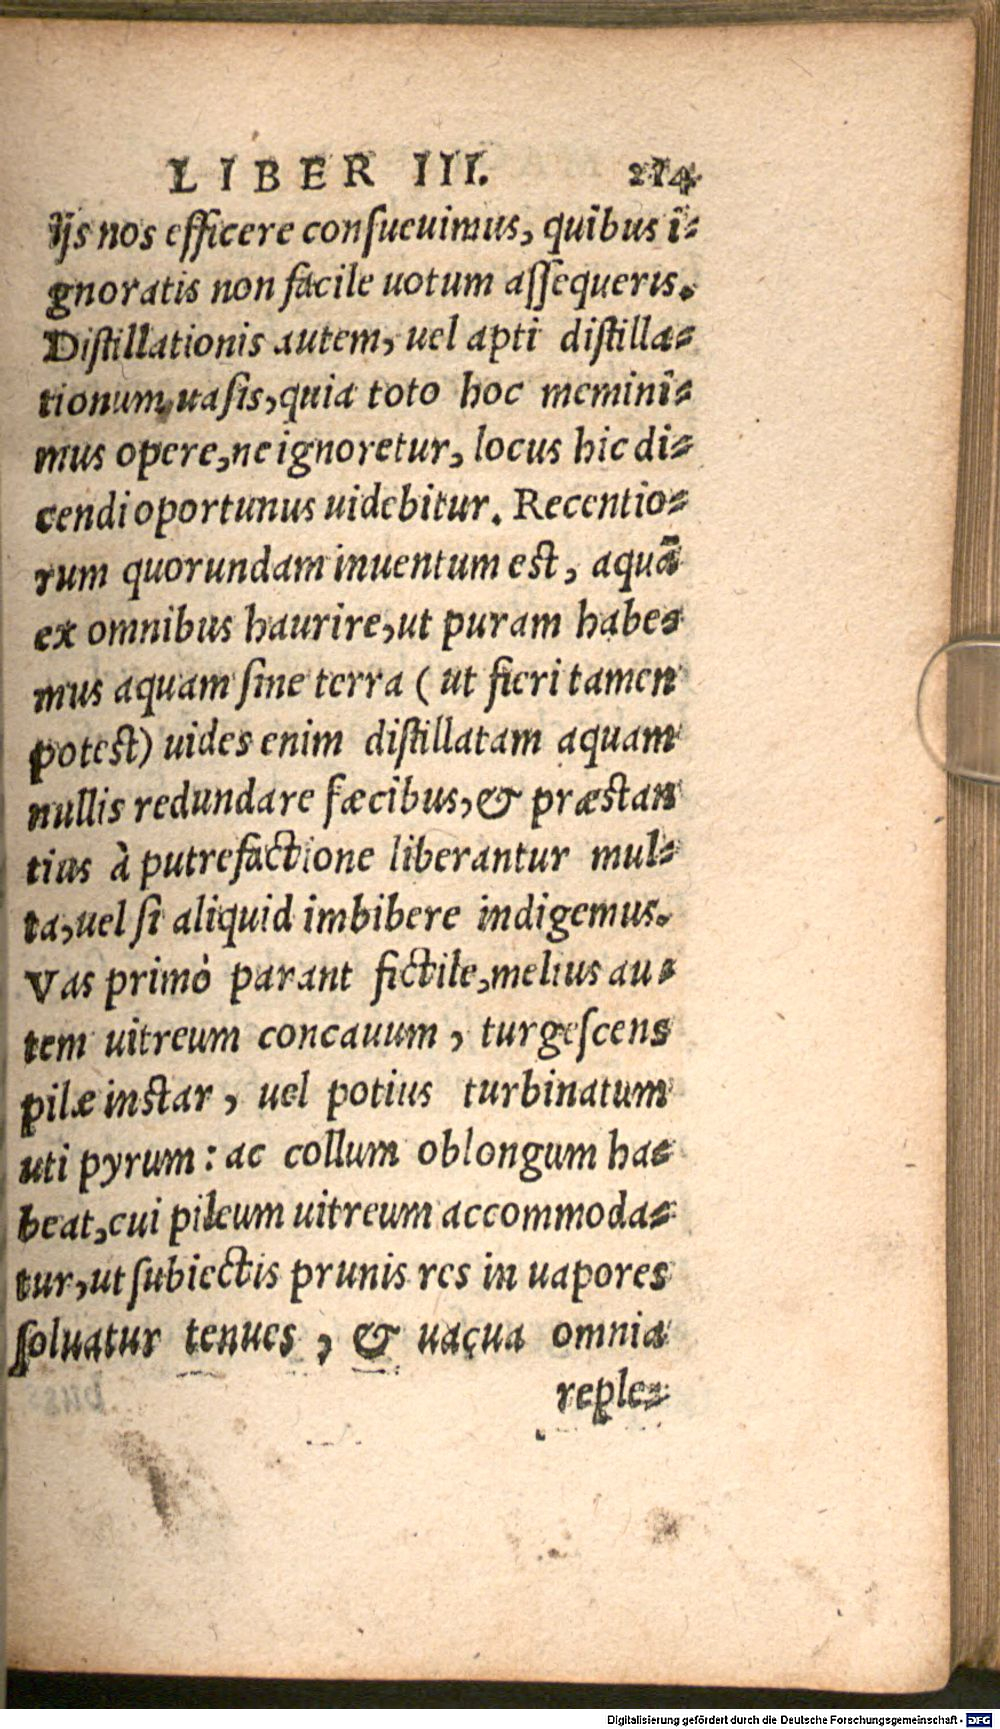 LIBER III. 214
Ijs nos efficere conſueuimus, quibus i-
gnoratis non facile uotum aſſequeris.
Diſtillationis autem, uel apti diſtilla-
tionum uaſis, quia toto hoc memini-
mus opere, ne ignoretur, locus hic di-
cendi oportunus uidebitur. Recentio-
rum quorundam inuentum est, aquā
ex omnibus haurire, ut puram habe-
mus aquam ſine terra ( ut fieri tamen
potest) uides enim diſtillatam aquam
nullis redundare fæcibus, & præstan
tius à putrefactione liberantur mul-
ta, uel ſi aliquid imbibere indigemus.
Vas primò parant fictile, melius au-
tem uitreum concauum, turgeſcens
pilæ instar, uel potius turbinatum
uti pyrum: ac collum oblongum ha-
beat, cui pileum uitreum accommoda-
tur, ut ſubiectis prunis res in uapores
ſoluatur tenues, & uacua omnia
reple-
Digitalisierung gefördert durch die Deutsche Forschungsgemeinschaft - DFG